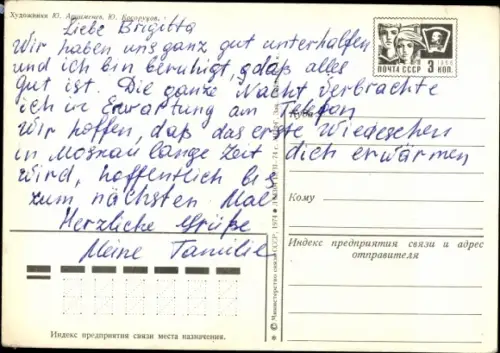 Художники Ю. Артименев, Ю.
Liebe Brigitta
Wir haben uns ganz gut unterhalten
und ich bin beruhigt, daß alles
gut ist. Die ganze Nacht verbrachte
ich in Erwartung am Telefon
Wir hoffen, daß das erste Wiedesehen
in Moskau lange Zeit dich erwärmen
wird, hoffentlich bis
zum nächsten Mal
Herzliche Grüße
Meine Familie
ПОЧТА СССР 3 КОП.
1966
Куда
Кому
Индекс предприятия связи и адрес
отправителя
© Министерство связи СССР, 1974
Индекс предприятия связи места назначения.